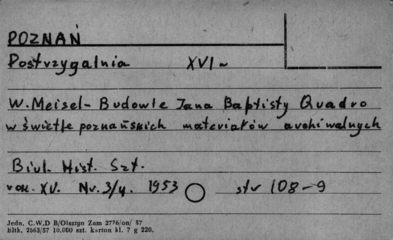 POZNAŃ
Postrzygalnia XVI w
W. Meisel - Budowle Jana Baptisty Quadro
w świetle poznańskich materiałów archiwalnych
Biul. Hist. Szt.
rok. XV. Nr. 3/4. 1953 str 108-9
Jedn. C.W.D B/Olsztyn Zam 2776/on/ 57
Bibk. 2563/57 10.000 szt. karton kl. 7 g 220.